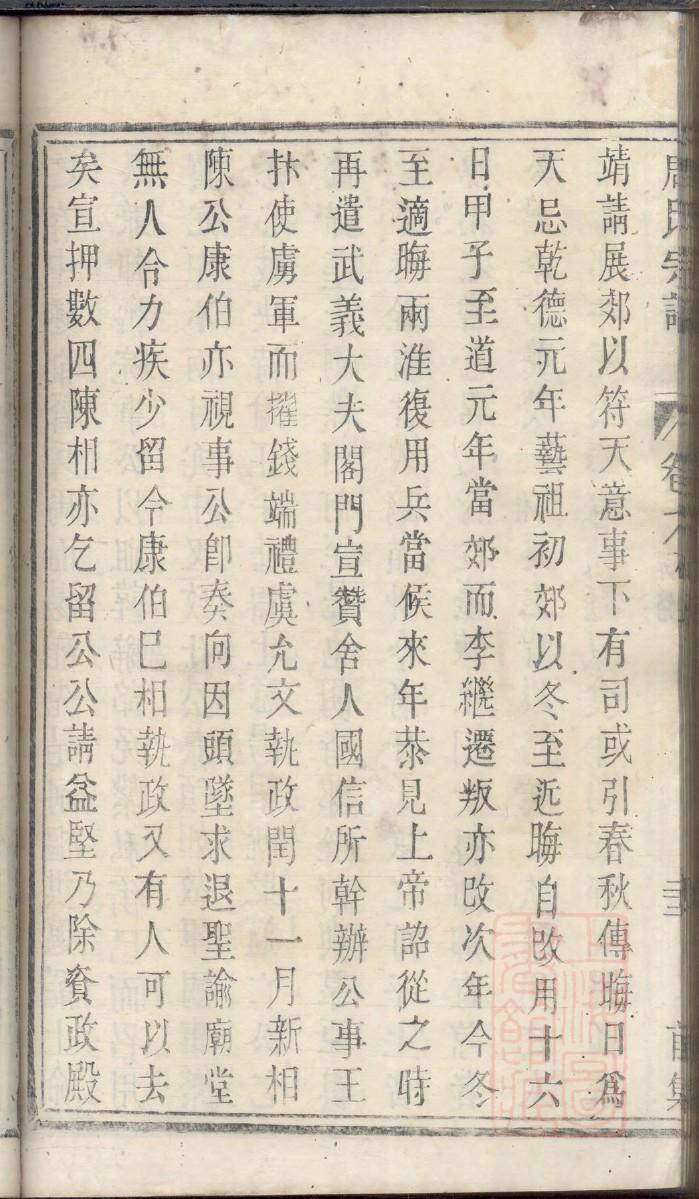 靖請展郊以符天意事下有司或引春秋傳晦日為
天忌乾德元年藝祖初郊以冬至近晦自改用十六
日甲子至道元年當郊而李繼遷叛亦改次年今冬
至適晦兩淮復用兵當候來年恭見上帝詔從之時
再遣武義大夫閤門宣贊舍人國信所幹辦公事王
抃使虜軍而擢錢端禮虞允文執政閏十一月新相
陳公康伯亦視事公卽奏向因頭墜求退聖諭廟堂
無人令力疾少留今康伯巳相執政又有人可以去
矣宣押數四陳相亦乞留公公請益堅乃除資政殿